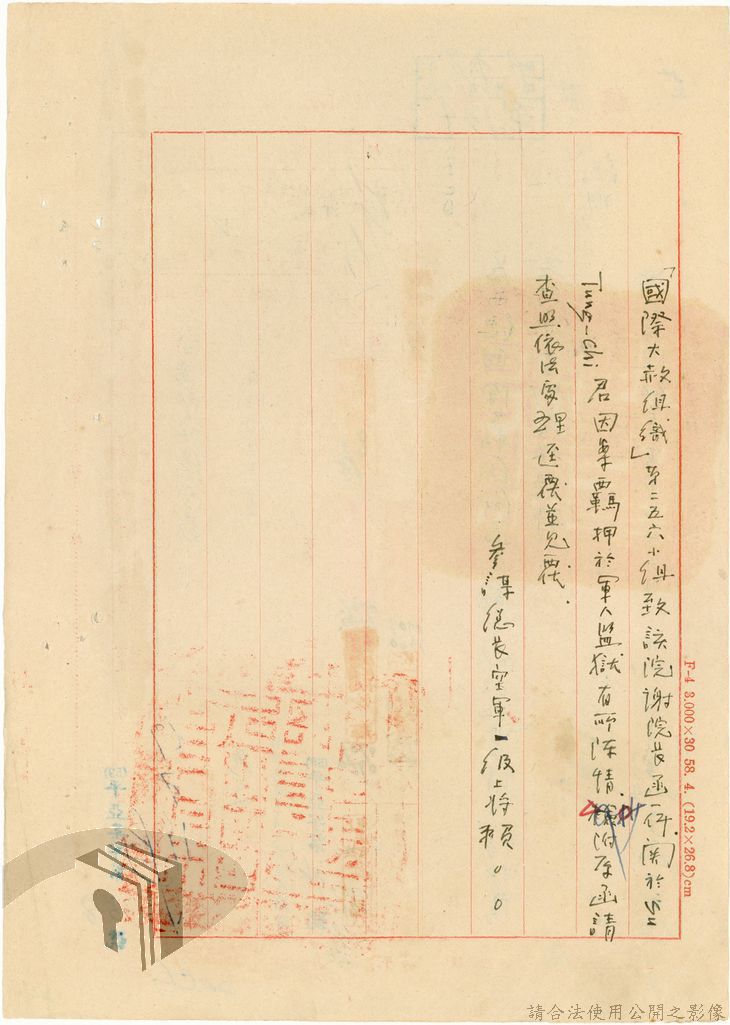 「國際大赦組織」第二五六小組致該院謝院長函一件關於
Tung-chi君因案羈押於軍人監獄有所陳情附原函請
查照依法處理逕覆並見覆.
參謀總長空軍一級上將賴○○
F-4 3,000×30 58. 4. (19.2×26.8)cm
請合法使用公開之影像